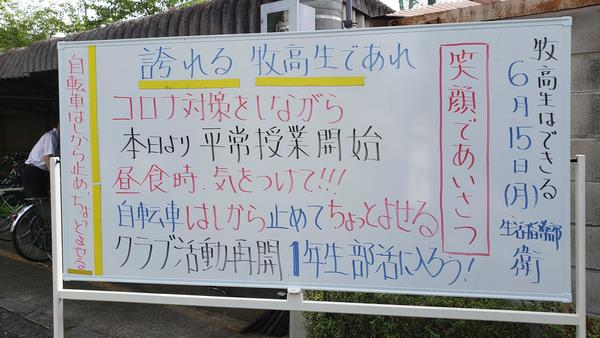 牧高生はできる
6月15日(月)
生活指導部
衛
笑顔であいさつ
誇れる 牧高生であれ
コロナ対策をしながら
本日より平常授業開始
昼食時.気をつけて!!!
自転車はしから止めてちょっとよせる
クラブ活動再開 1年生部活に入ろう!
自転車はしから止めちょっとよせる